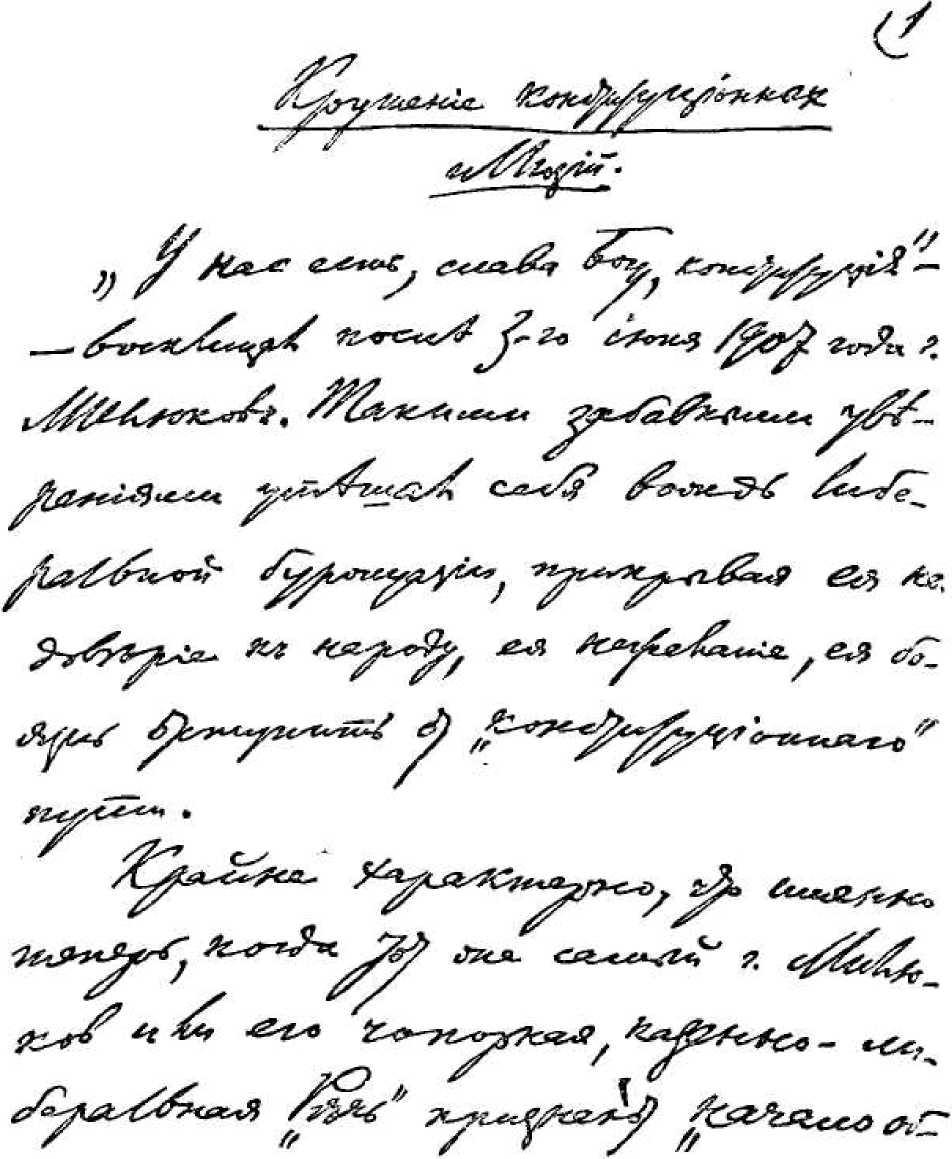 1
Крушеніе конституціонных
иллюзій.
„У нас есть, слава Богу, конституція" –
– восклицал послѣ 3-го іюня 1907 года г.
Милюковъ. Такими забавными увѣ-
реніями утѣшал себя вождь либе-
ральной буржуазіи, прикрывая ея не-
довѣріе къ народу, ея нежеланіе, ея бо-
язнь отступить от „конституціоннаго"
пути.
Крайне характерно, что именно
теперь, когда тот же самый г. Милю-
ков или его чопорная, казенно-ли-
беральная „Рѣчь" признает „начало об-